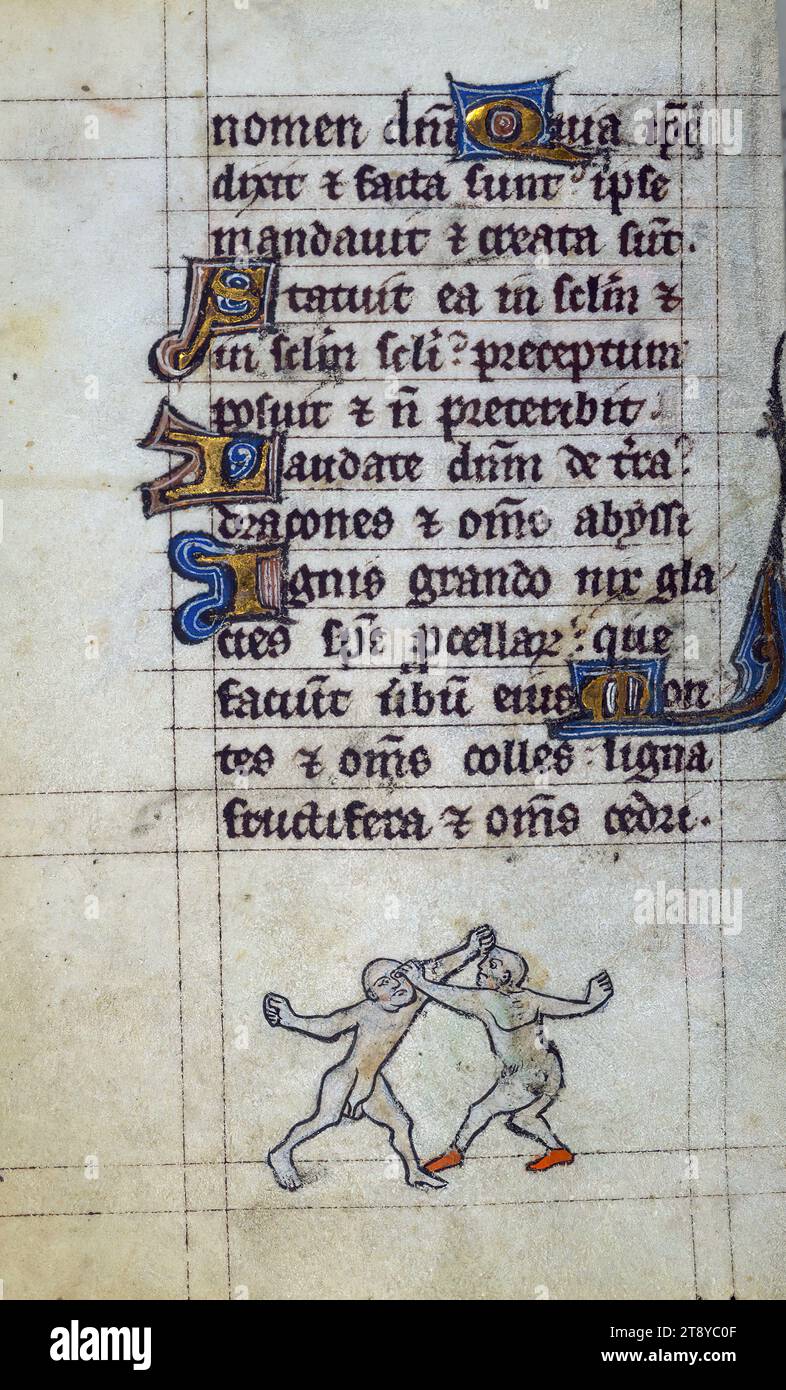 nomen dnī Quia ip̄e
dixit ⁊ facta sunt: ipse
mandauit ⁊ creata sūt.
Statuit ea in sclm̄ ⁊
in sclm̄ scli: preceptum
posuit ⁊ n̄ preteribit.
Laudate dnm̄ de t̄ra:
dracones ⁊ om̄s abyssi
Ignis grando nix gla
cies sp̄c pcellaꝝ: que
faciūt ūbū eius Mon
tes ⁊ om̄s colles: ligna
fructifera ⁊ om̄s cedri.
alamy
Image ID: T8YC0F
www.alamy.com